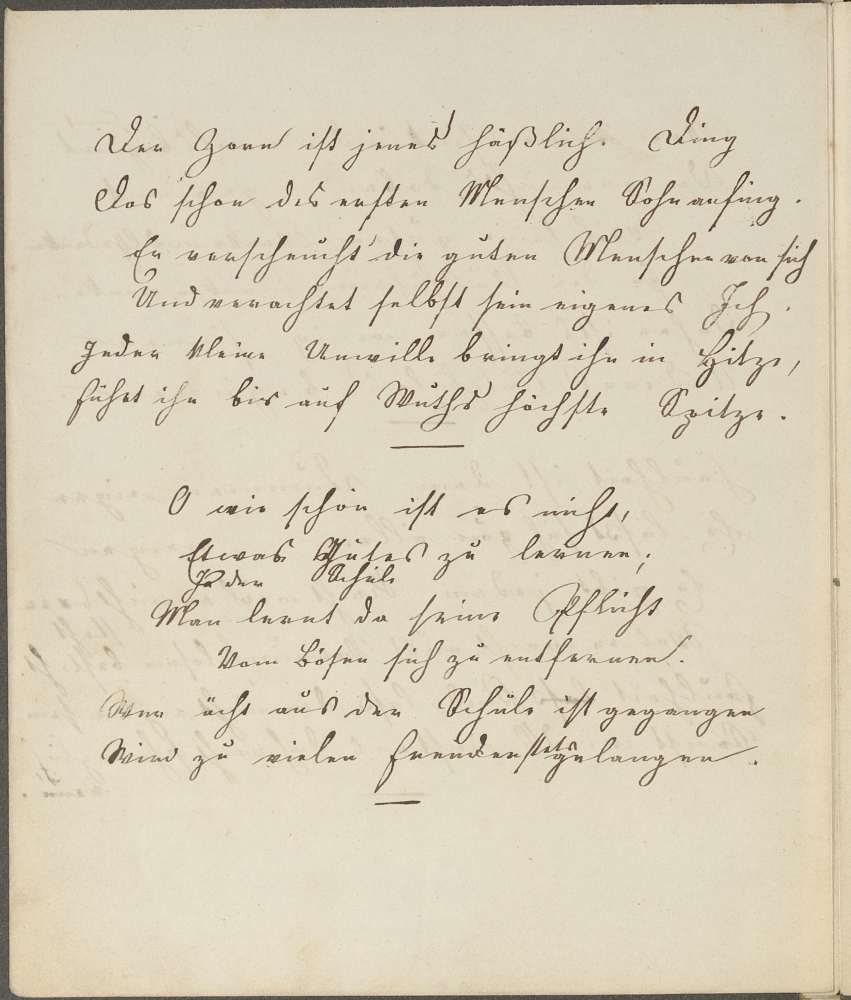 Der Zorn ist jenes häßlich. Ding
Das schon des ersten Menschen Sohn anfing.
Er verscheucht die guten Menschen von sich
Und verachtet selbst sein eigenes Ich.
Jeder kleine Unwille bringt ihn in Hitze,
Führt ihn bis auf Wuths höchste Spitze.
O wie schön ist es nicht,
Etwas Gutes zu lernen;
In der Schule
Man lernt da seine Pflicht
Vom Bösen sich zu entfernen.
Wer ächt aus der Schule ist gegangen
Wird zu vielen Freuden stets gelangen.